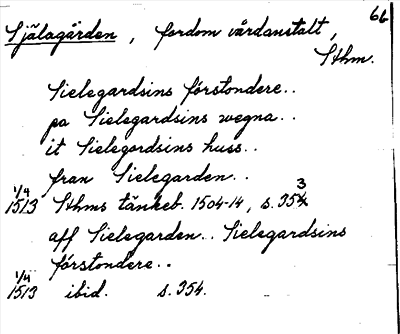 66
Själagården, fordom vårdanstalt,
Sthm.
Sielegardsins förstondere..
pa Sielegardsins wegna..
it Sielegordsins huss..
fran Sielegarden..
1/4 1513 Sthms tänkeb. 1504-14, s. 353
aff Sielegarden.. Sielegardsins
förstondere..
1/4 1513 ibid. s. 354.